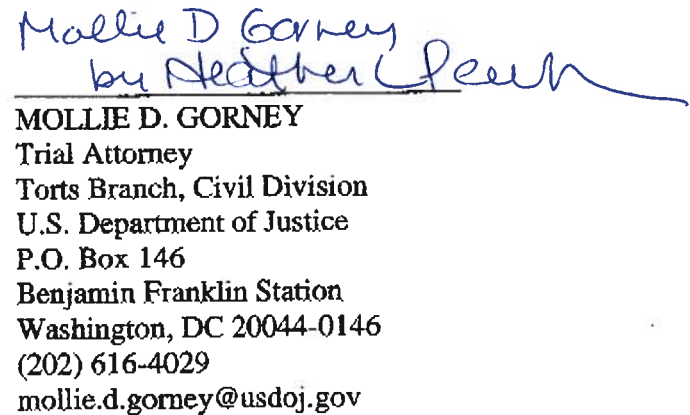 Mollie D Gorney
by Heather L Pearlman
MOLLIE D. GORNEY
Trial Attorney
Torts Branch, Civil Division
U.S. Department of Justice
P.O. Box 146
Benjamin Franklin Station
Washington, DC 20044-0146
(202) 616-4029
mollie.d.gorney@usdoj.gov